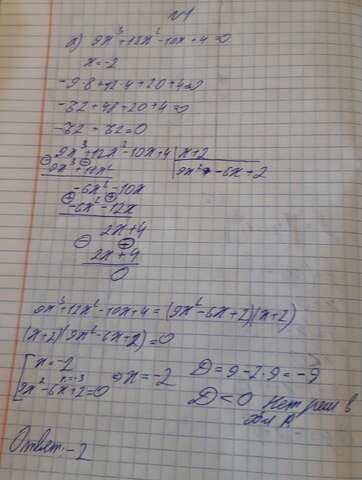 №1
а) 9x³+12x²-10x+4=0
x=-2
-9·8+12·4+20+4=0
-72+48+20+4=0
-72-72=0
9x³+12x²-10x+4 | x+2
9x³+18x² | 9x²-6x+2
-6x²-10x
-6x²-12x
2x+4
2x+4
0
9x³+12x²-10x+4=(9x²-6x+2)(x+2)
(x+2)(9x²-6x+2)=0
[ x=-2
9x²-6x+2=0 ⇒ x=-2 D=9-2·9=-9
D<0 Нет реш в
Ответ: -2